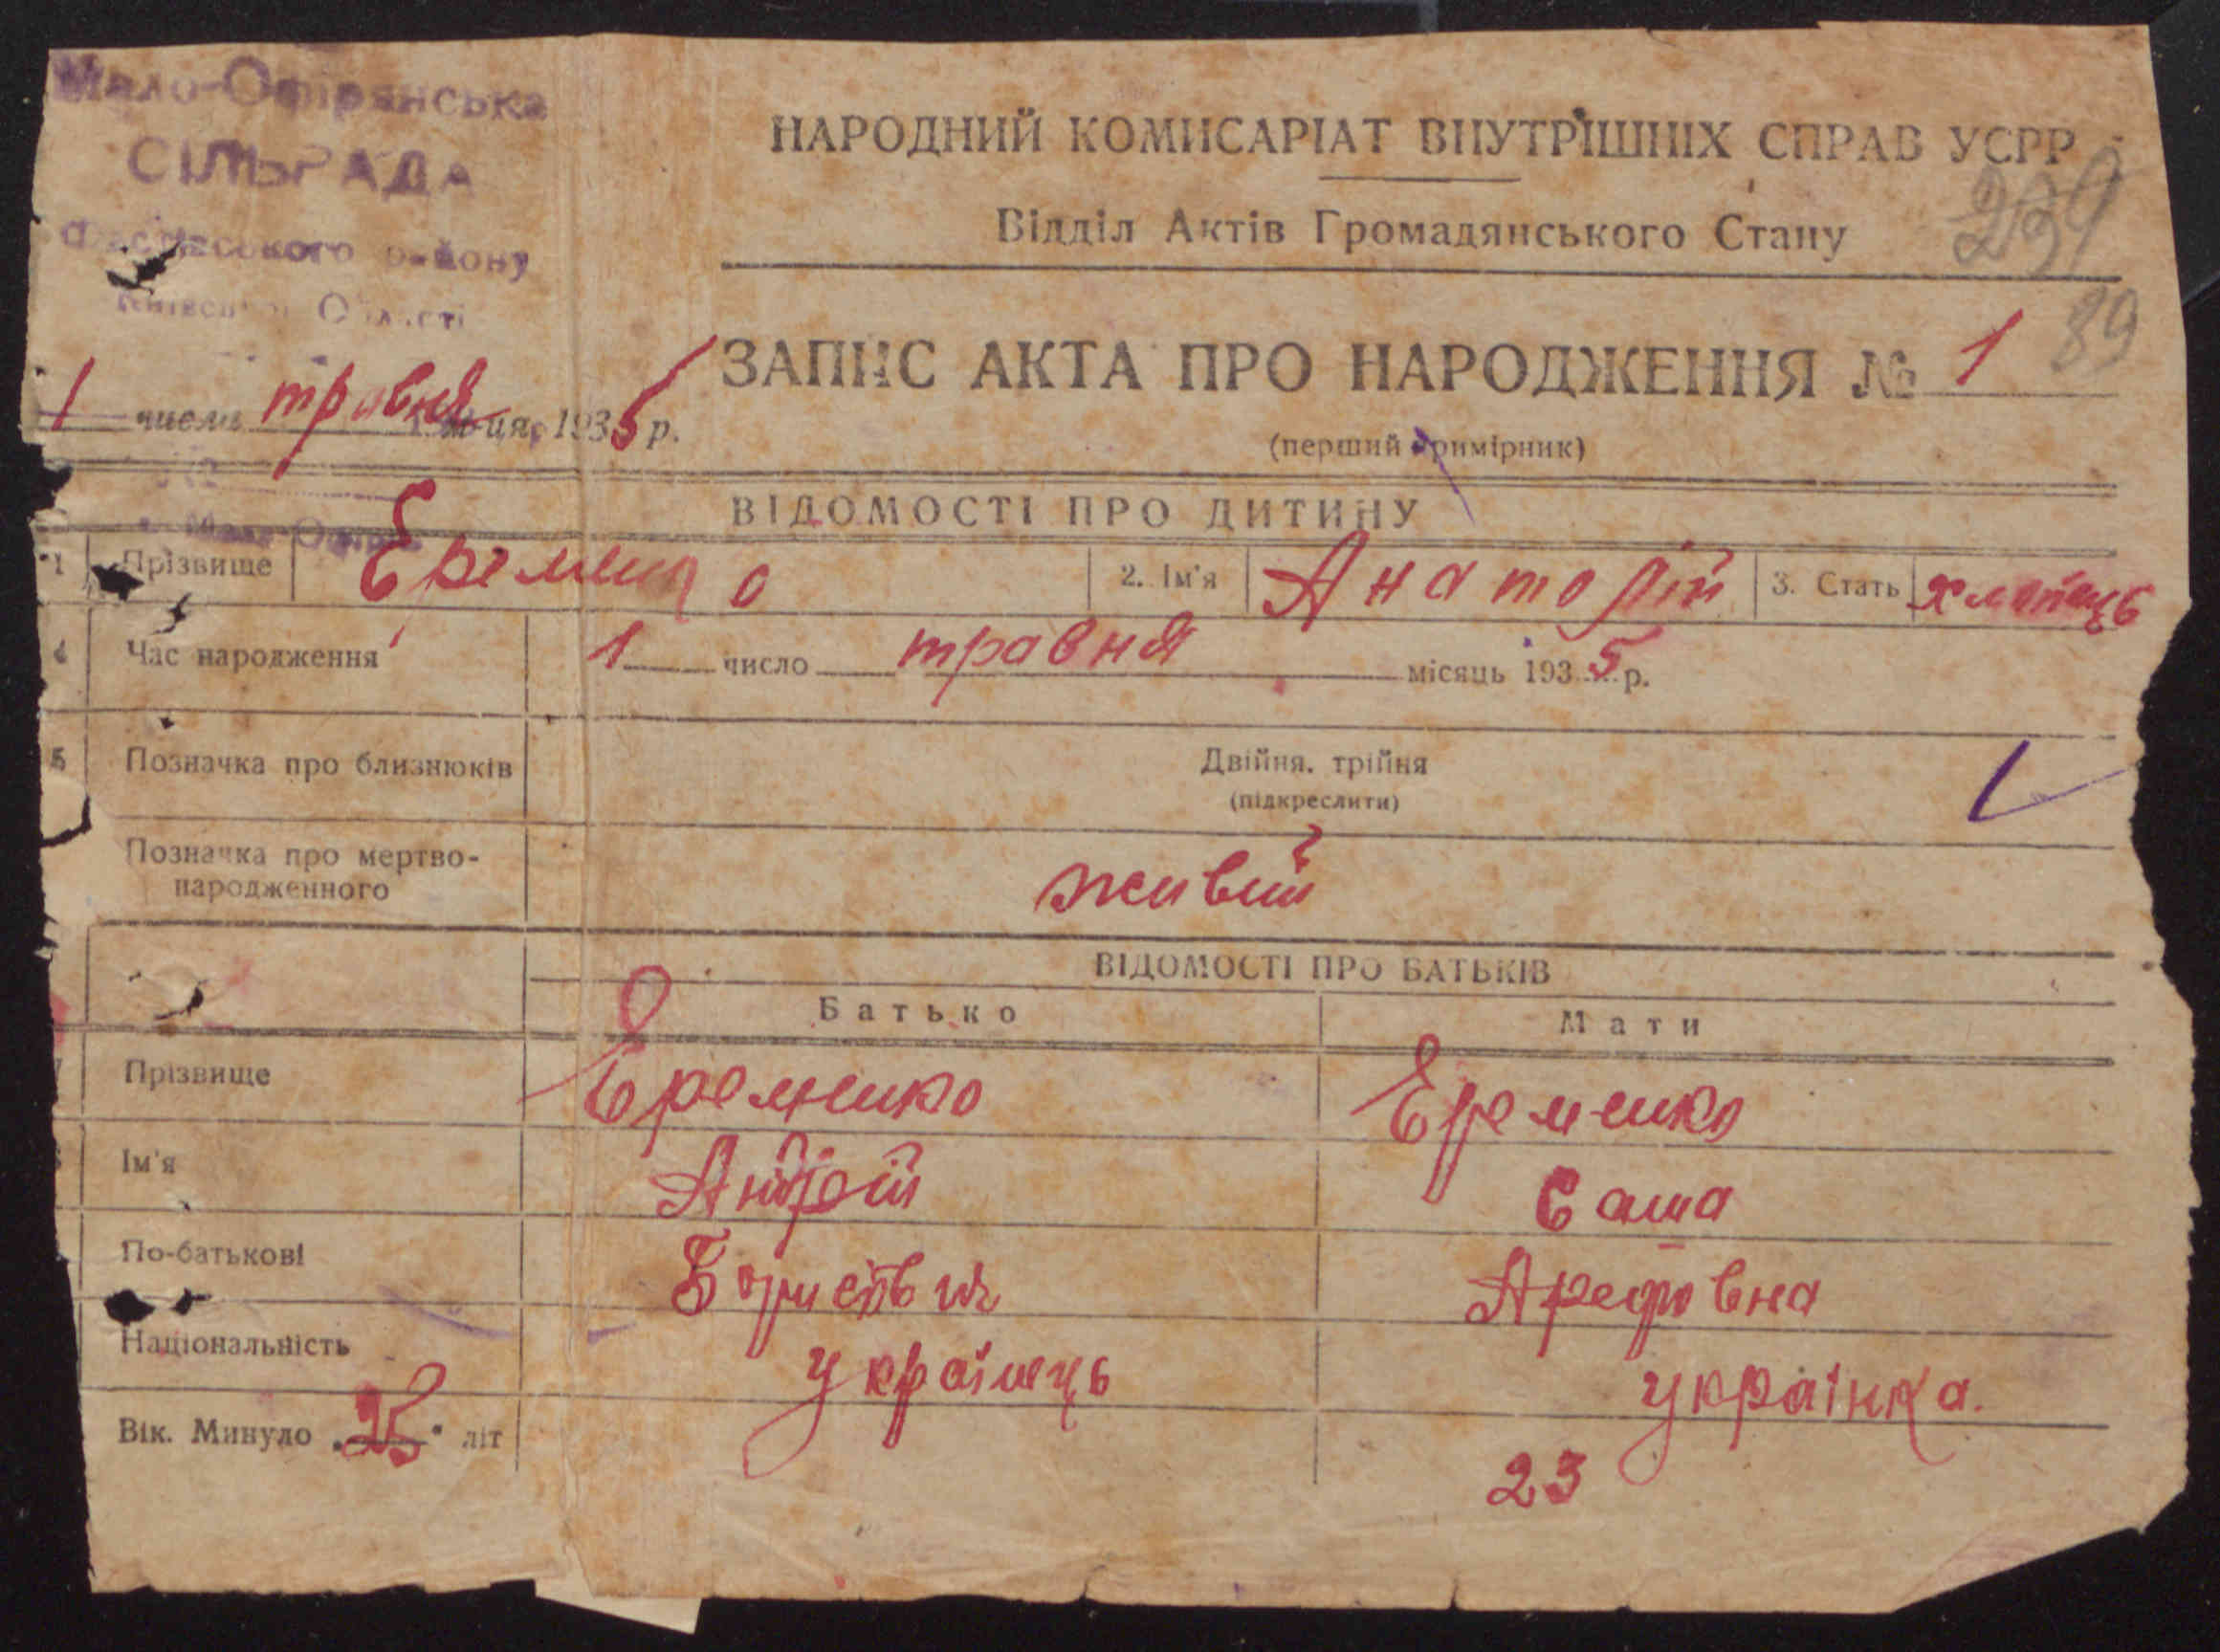 Мало-Офірянська
СІЛЬРАДА
району
Області
НАРОДНИЙ КОМИСАРІАТ ВНУТРІШНІХ СПРАВ УСРР
Відділ Актів Громадянського Стану
239
89
ЗАПИС АКТА ПРО НАРОДЖЕННЯ № 1
(перший примірник)
1 числа травня м-ця, 1935 р.
ВІДОМОСТІ ПРО ДИТИНУ
1 Прізвище Еременко 2. Ім'я Анатолій 3. Стать хлопець
4 Час народження 1 число травня місяць 1935 р.
5 Позначка про близнюків Двійня, трійня
(підкреслити)
Позначка про мертво-
народженного живий
ВІДОМОСТІ ПРО БАТЬКІВ
Батько Мати
Прізвище Еременко Еременко
Ім'я Андрій Саша
По-батькові Арефовна
Національність українець українка.
Вік. Минуло 25 літ 23